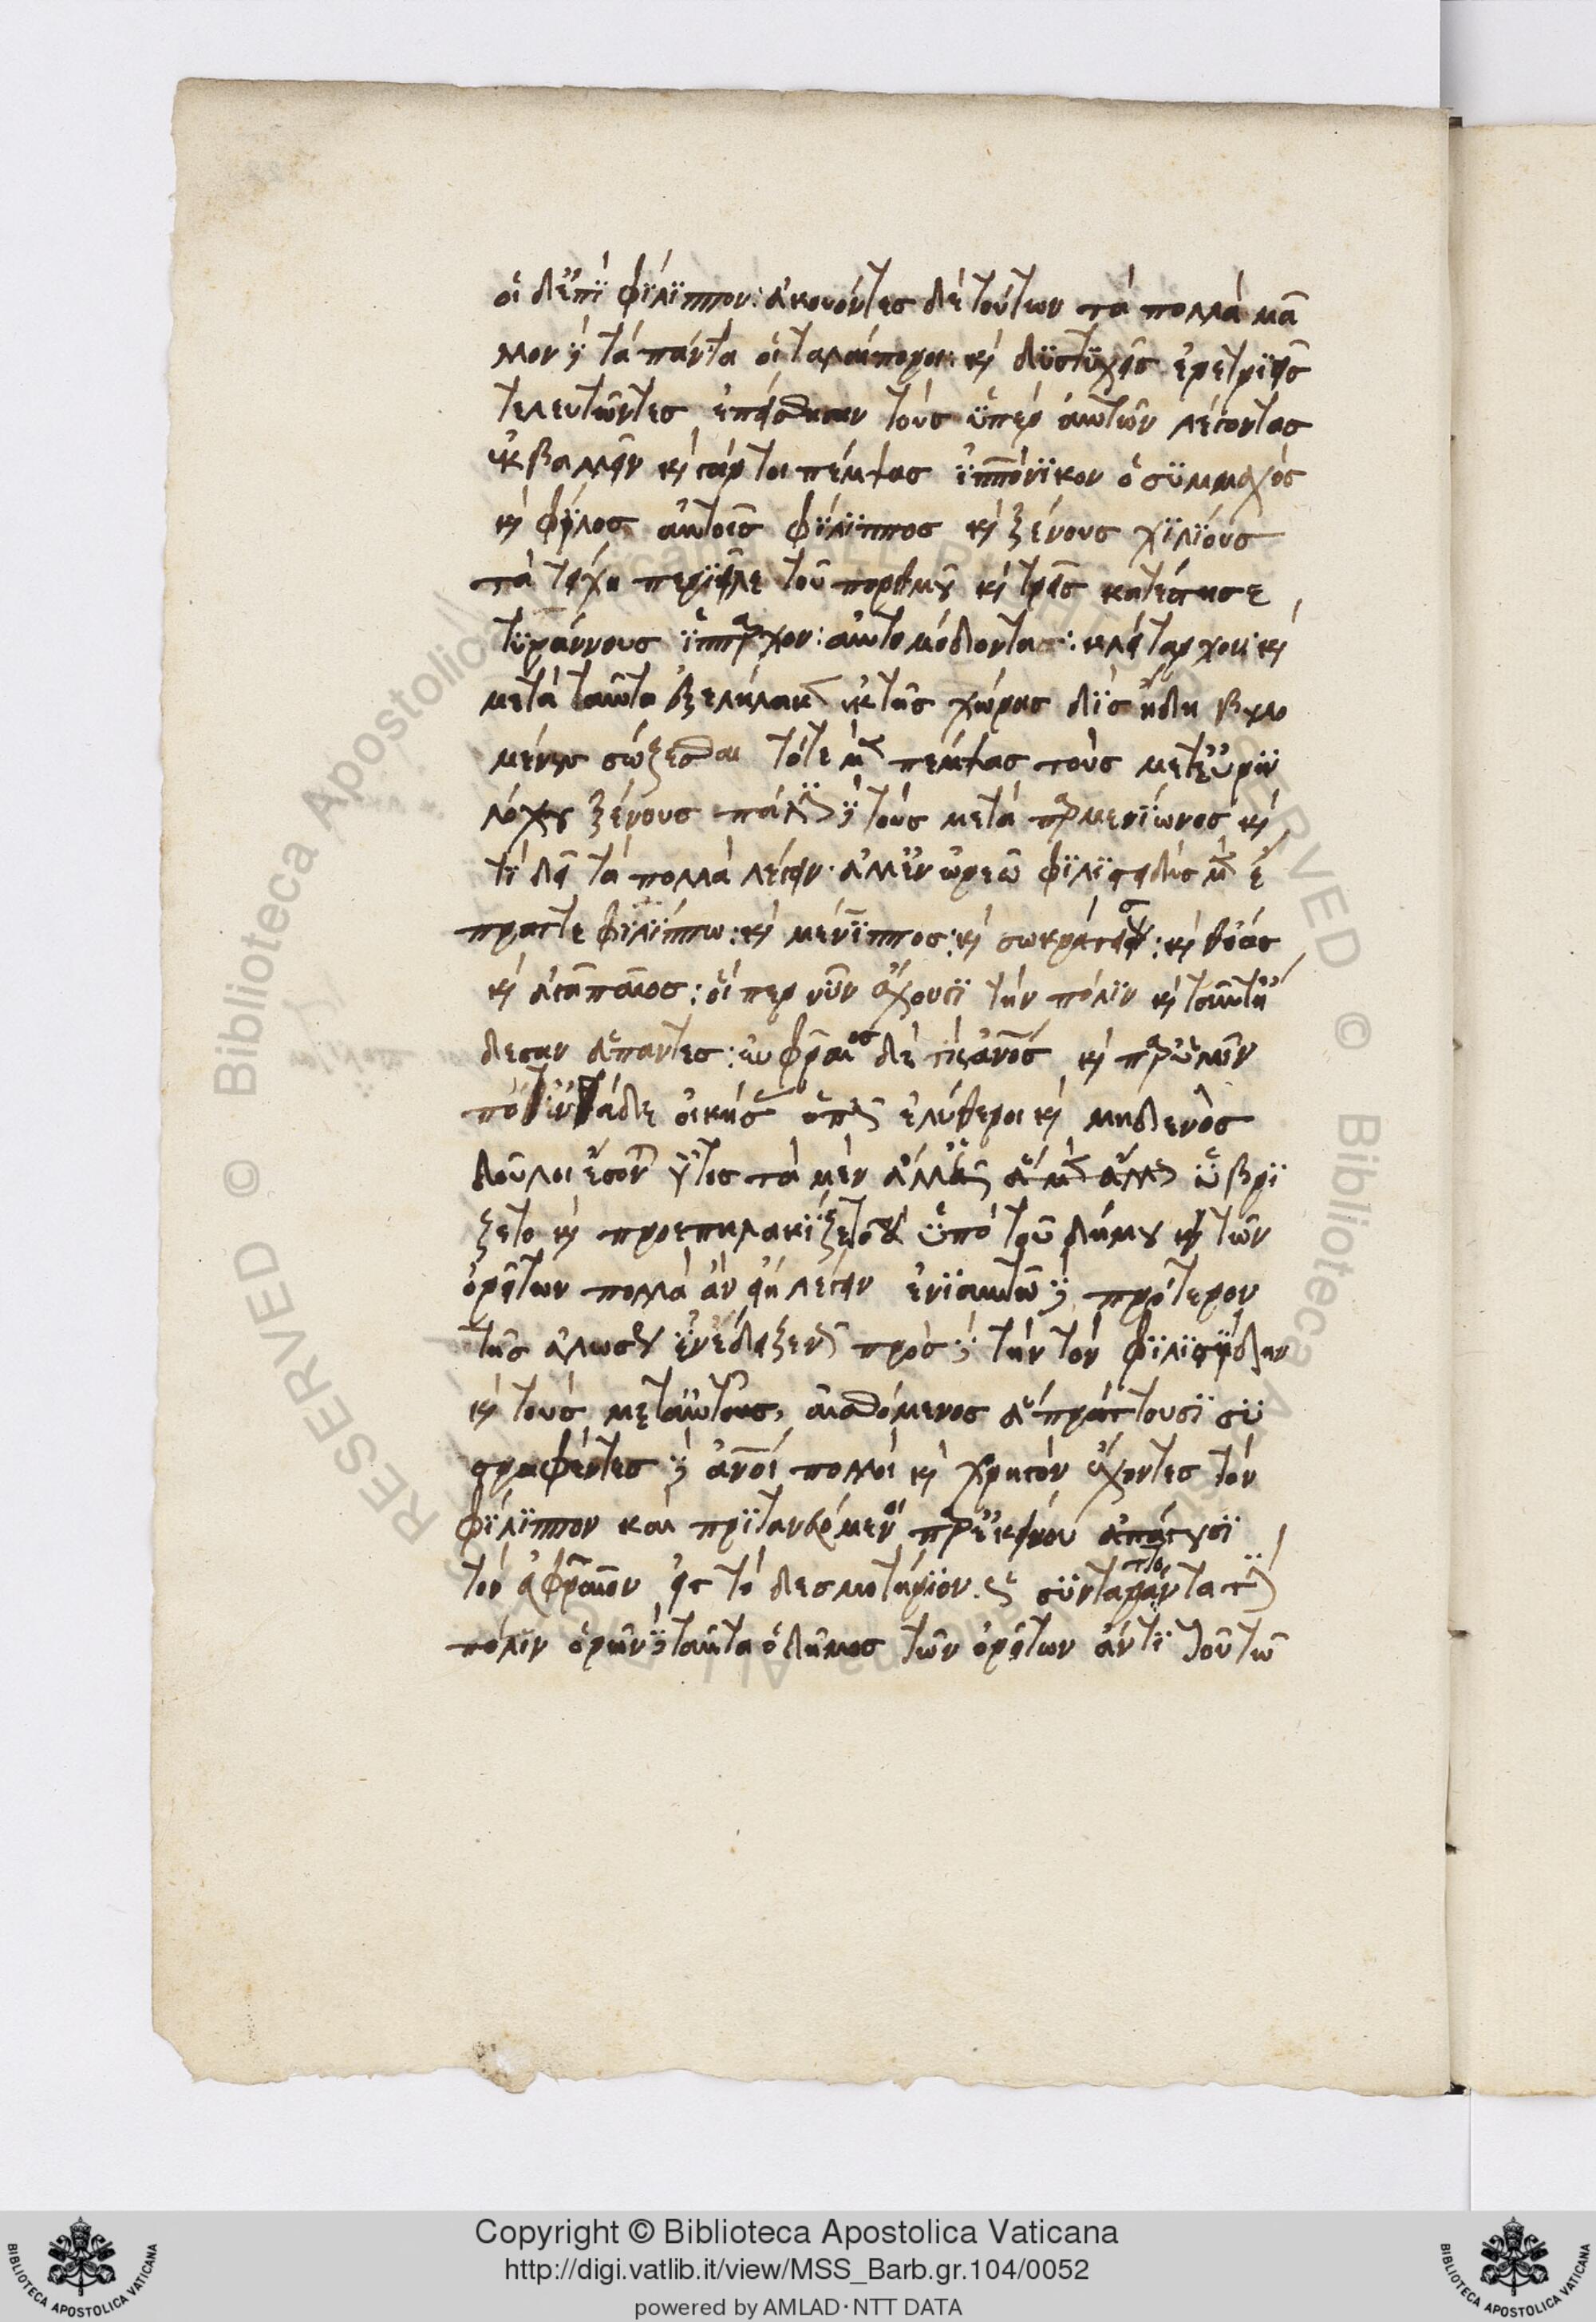 οἱ δ' ἐπὶ φίλιππον: ἀκουόντες δὲ τούτων τὰ πολλὰ μᾶ
λλον δὲ τὰ πάντα οἱ ταλαίποροι: καὶ δυστυχεῖς ἐρετριεῖς
τελευτῶντες ἐπείσθησαν τοὺς ὑπὲρ αὐτῶν λέγοντας
ἐκβαλλεῖν καὶ γάρ τοι πέμψας ἱππόνικον ὁ σύμμαχος
καὶ φίλος αὐτοῖς φίλιππος καὶ ξένους χιλίους
τὰ τείχη περιεῖλε τοῦ πορθμοῦ καὶ τρεῖς κατέστησε
τυράννους ἵππαρχον: αὐτομέδοντα: κλείταρχον: καὶ
μετὰ ταῦτα ἐξελήλακεν ἐκ τῆς χώρας δὶς ἤδη βουλο
μένους σώζεσθαι τότε μὲν πέμψας τοὺς μετ' εὐρυ
λόχου ξένους πάλιν δὲ τοὺς μετὰ παρμενίωνος καὶ
τί δεῖ τὰ πολλὰ λέγειν· ἀλλ' ἐν ὠρεῷ φιλιστείδης μὲν ἔ
πραττε φιλίππω: καὶ μένιππος: καὶ σωκράτης: καὶ θόας
καὶ ἀγαπαῖος: οἵπερ νῦν ἔχουσι τὴν πόλιν καὶ ταῦτ' ἤ
δεσαν ἅπαντες: εὐφραῖος δέ τις ἄνος καὶ παρ' ἡμῖν
ποτ' ἐνθάδε οἰκήσας ὅπως ἐλεύθεροι καὶ μηδενὸς
δοῦλοι ἔσονται οὗτος τὰ μὲν ἄλλα ὡς ὑβρί
ζετο καὶ προεπηλακίζετο ὑπὸ τοῦ δήμου καὶ τῶν
ὀρειτῶν πολλὰ ἂν εἴη λέγειν ἐνιαυτῶ δὲ πρότερον
τῆς ἁλώσεως ἐνέδειξεν ὡς προδότην τὸν φιλιστείδην
καὶ τοὺς μετ' αὐτοῦ, αἰσθόμενος ἃ πράττουσι συ
στραφέντες δὲ ἄνοι πολλοὶ καὶ χορηγὸν ἔχοντες τὸν
φίλιππον καὶ πρυτανευόμενοι παρ' ἐκείνου ἀπάγουσι
τὸν εὐφραῖον εἰς τὸ δεσμωτήριον ὡς συνταράττοντα τὴν
πόλιν ὁρῶν δὲ ταῦτα ὁ δῆμος τῶν ὀρειτῶν ἀντὶ τοῦ τῶ
Copyright © Biblioteca Apostolica Vaticana
http://digi.vatlib.it/view/MSS_Barb.gr.104/0052
powered by AMLAD · NTT DATA